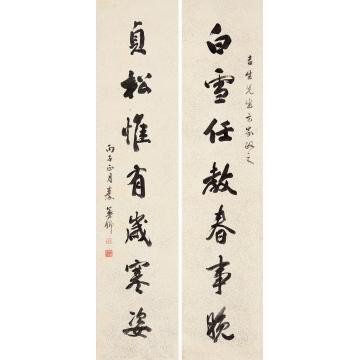 吉生先生方家政之
白雪任教春事晚
貞松惟有歲寒姿
丙子正月